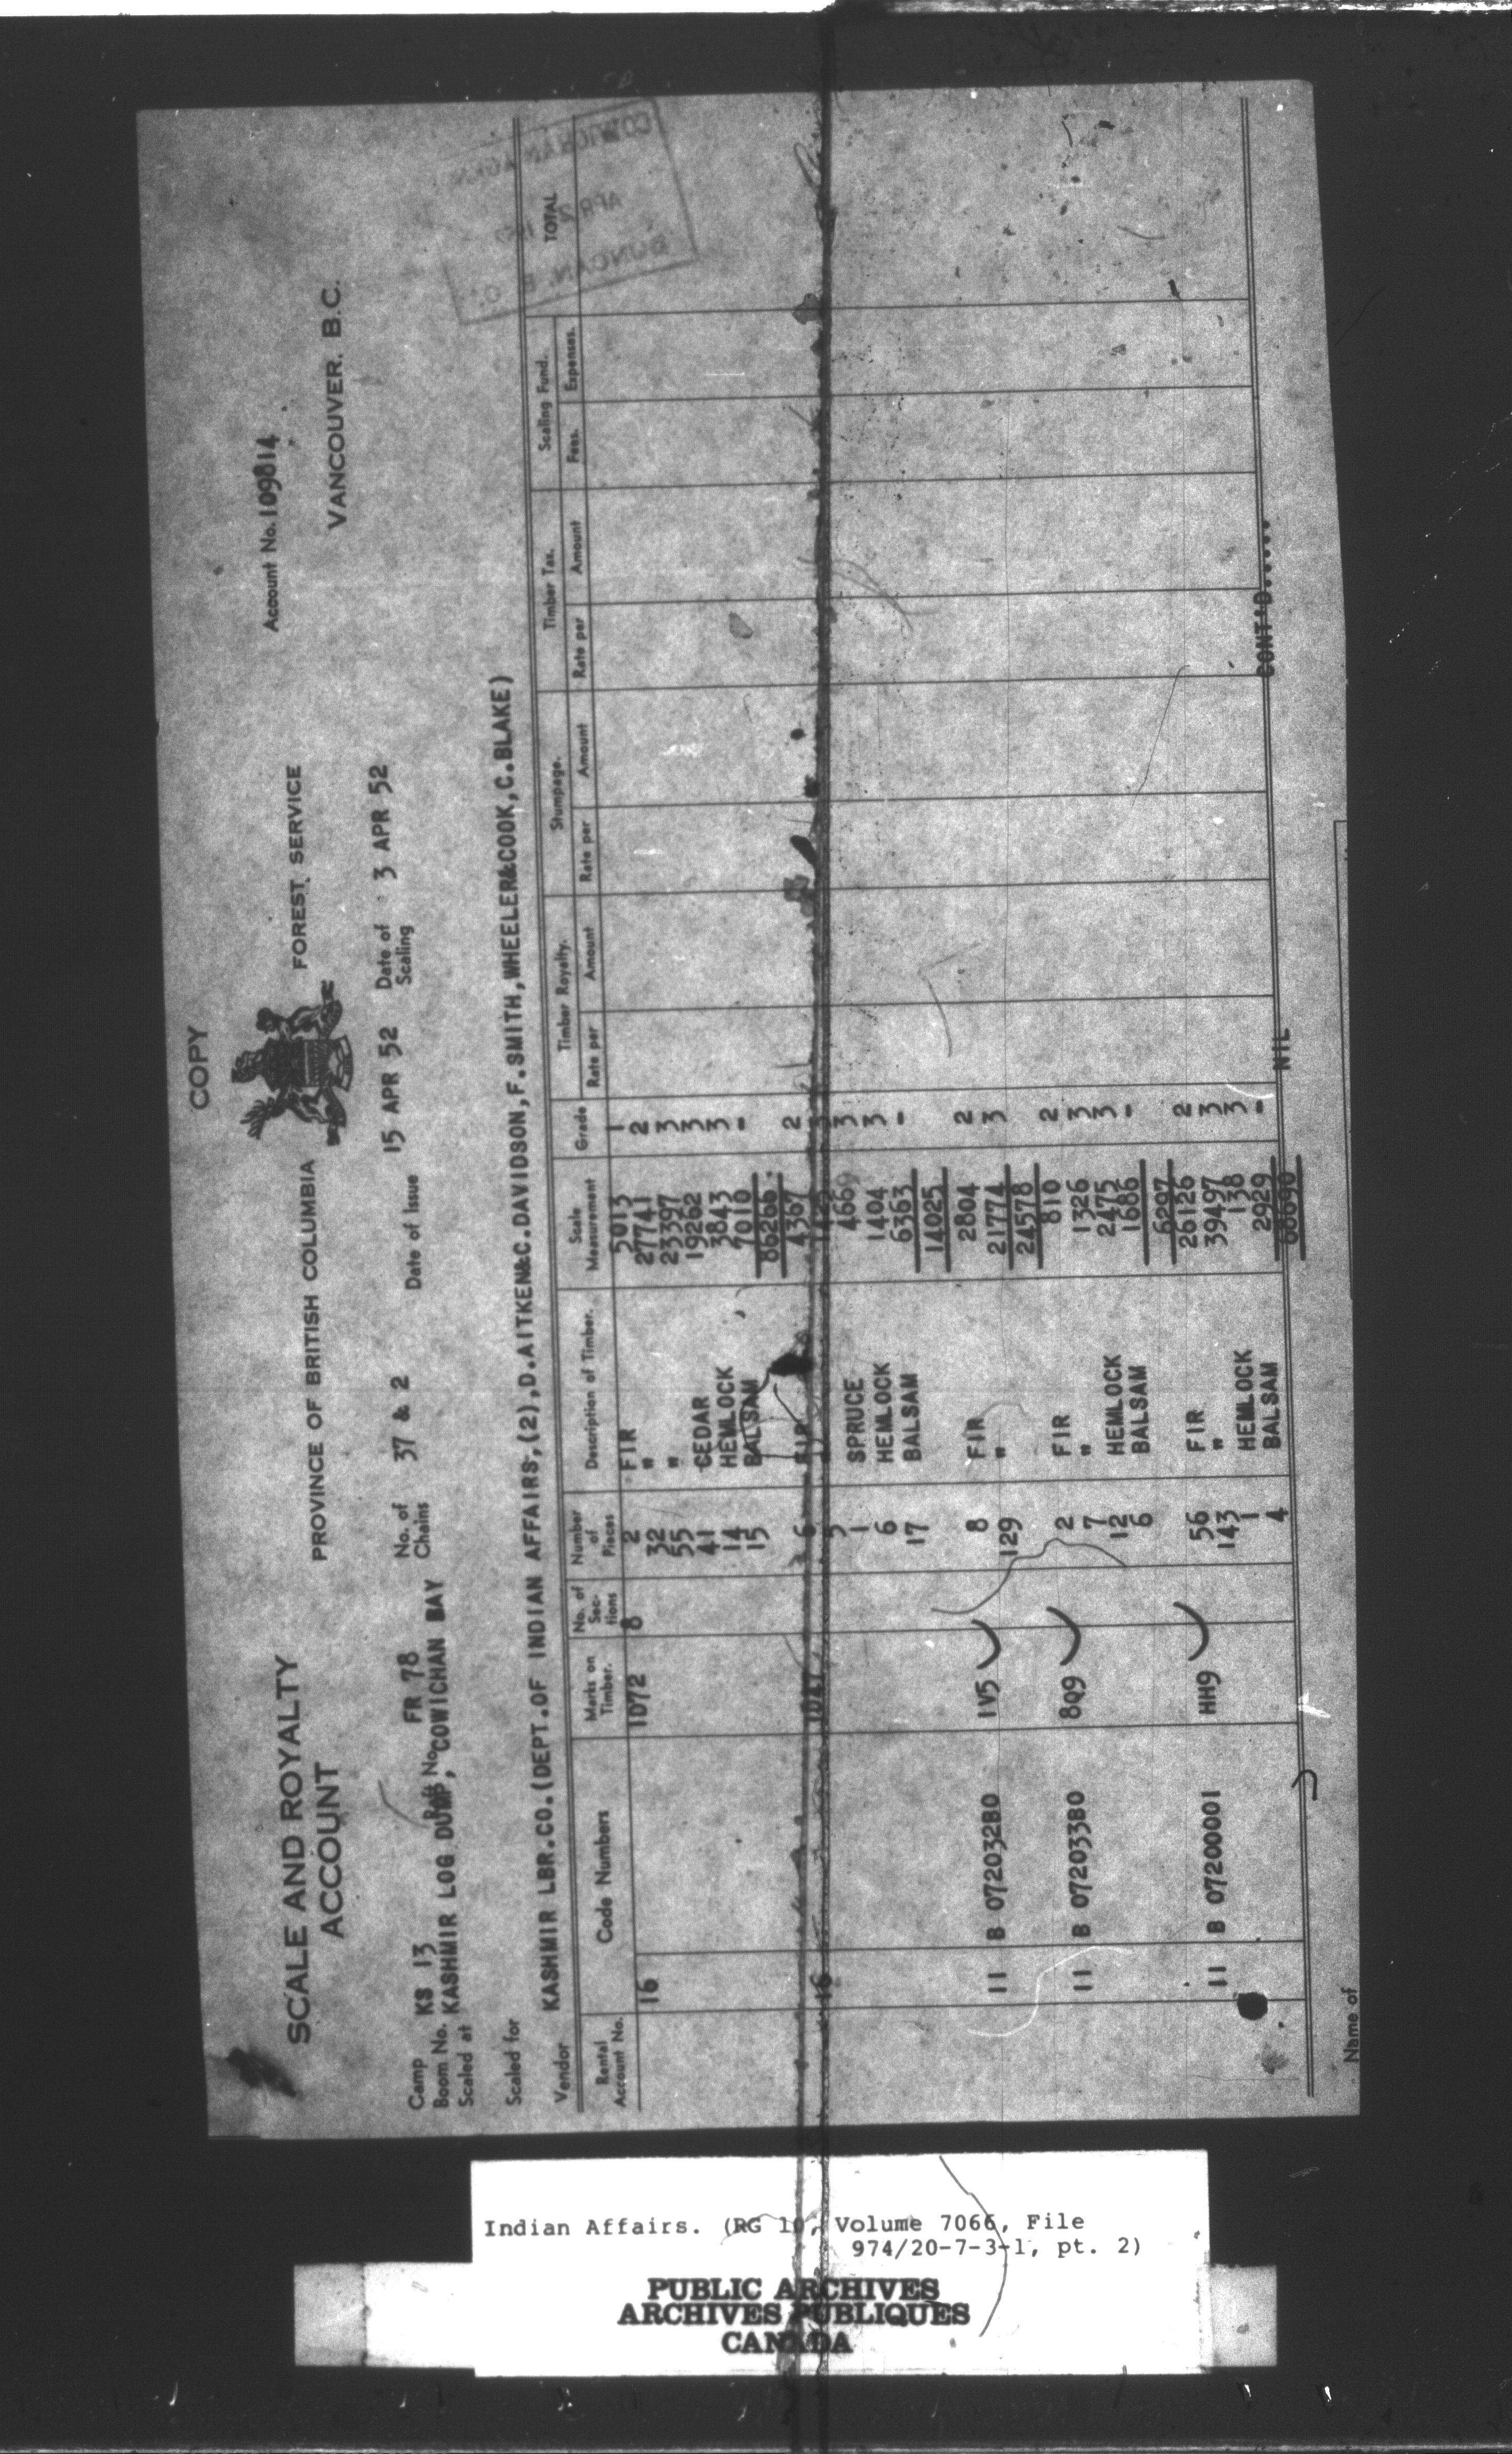 COPY
SCALE AND ROYALTY ACCOUNT
PROVINCE OF BRITISH COLUMBIA FOREST SERVICE
Account No. 109814
VANCOUVER, B.C.
Camp KS 13 FR 78 No. of Chains 37 & 2 Date of Issue 15 APR 52 Date of Scaling 3 APR 52
Boom No. Raft No.
Scaled at KASHMIR LOG DUMP, COWICHAN BAY
Scaled for
Vendor KASHMIR LBR.CO.(DEPT.OF INDIAN AFFAIRS,(2),D.AITKEN&C.DAVIDSON,F.SMITH,WHEELER&COOK,C.BLAKE)
Rental Account No. Code Numbers Marks on Timber. No. of Sections Number of Pieces Description of Timber. Scale Measurement Grade Timber Royalty. Stumpage. Timber Tax. Scaling Fund. TOTAL
Rate per Amount Rate per Amount Rate per Amount Fees. Expenses.
16 1072 8 2 FIR 5013 1
32 " 27741 2
55 " 23397 3
41 CEDAR 19262 3
14 HEMLOCK 3843 3
15 BALSAM 7010 -
86266
16 6 FIR 4367 2
5
1 SPRUCE 466 3
6 HEMLOCK 1404 3
17 BALSAM 6363 -
14025
11 B 072032B0 1V5 8 FIR 2804 2
129 " 21774 3
24578
11 B 072033B0 8Q9 2 FIR 810 2
7 " 1326 3
12 HEMLOCK 2475 3
6 BALSAM 1686 -
6297
11 B 07200001 HH9 56 FIR 26126 2
143 " 39497 3
1 HEMLOCK 138 3
4 BALSAM 2929 -
68690 NIL
CONT'D......
Name of
COWICHAN AGENCY
APR 2
DUNCAN, B.C.
Indian Affairs. (RG 10, Volume 7066, File
974/20-7-3-1, pt. 2)
PUBLIC ARCHIVES
ARCHIVES PUBLIQUES
CANADA